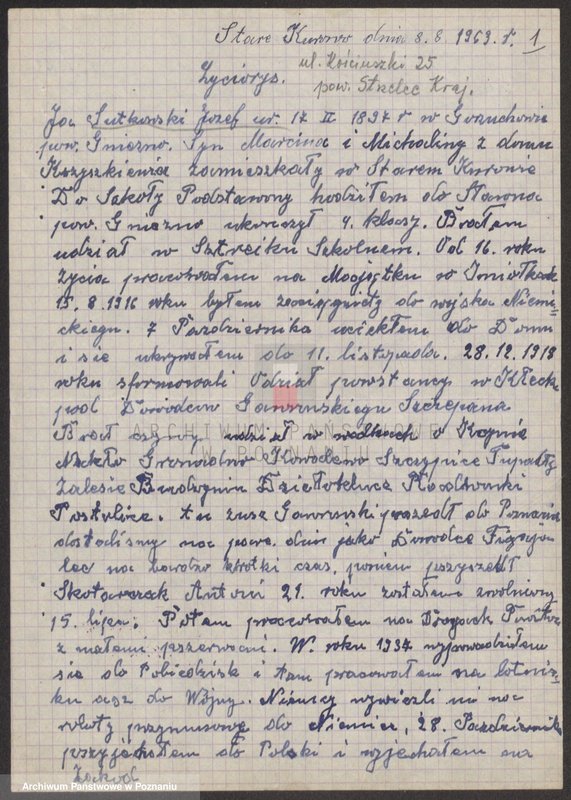 Stare Kurowo dnia 8.8 1969 r. 1
ul. Kościuszki 25
pow. Strzelec Kraj.
Życiorys.
Ja Sutkowski Józef ur. 17 II 1897 r w Gorzuchowie
pow. Gniezno. Syn Marcina i Michaliny z domu
zamieszkały w Starem Kurowie
Do Szkoły Podstawowy hodziłem do Sławna
pow. Gniezno ukonczył 4. klasy. Brałem
udział w Sztreiku Szkolnem. Od 16. roku
życia pracowałem na Majątku w Imiołkach
15.8.1916 roku byłem zaciągnięty do wojska Niemi
ckiego. 7 Pazdziernika uciekłem do Domu
i sie ukrywałem do 11. listopada. 28.12.1918
roku sformowali Odział powstancy w Kłecku
pod Dowodcw Gawronskiego Szczepana
ARCHIWUM PAŃSTWOWE
W POZNANIU
Brał czynny udział w walkach o Kcynie
Nakło Szczypice
Zalesie
zaś Gawronski poszedł do Poznania
dostaliśmy na pare dni jako Dowodce
lec na bardzo krótki czas, potem przyszedł
Skotarczak Antoni 21. roku zostałem zwolniony
15. lipc. Potem pracowałem na Drogach
z małemi przerwami. W. roku 1937 wyprowadziłem
sie do Pobiedzisk i tam pracowałem na lotnis-
ku asz do Wojny. Niemcy wywiezli mi na
roboty przymusowe do Niemiec, 28. Pazdziernik
przyjechałem do Polski i wyjechałem na
Zachod
Archiwum Państwowe w Poznaniu